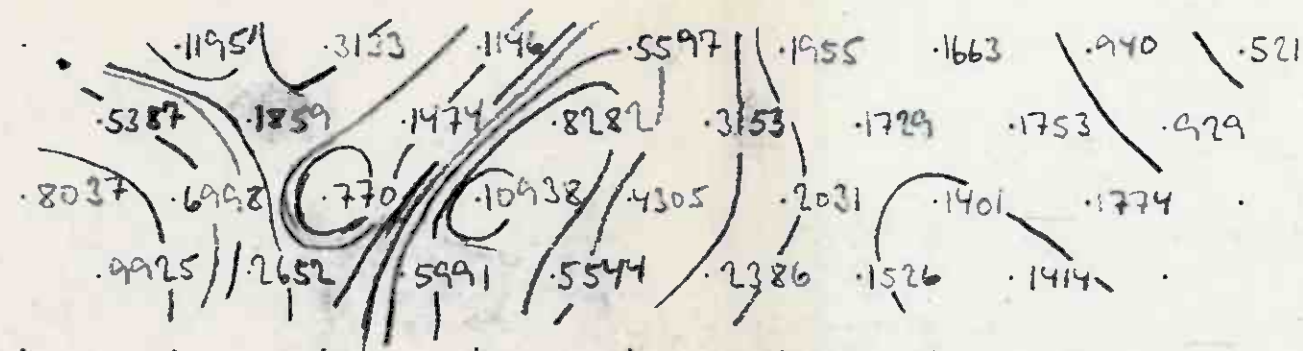 .1195 .3133 .1146 .5597 .1955 .1663 .940 .521
.5387 .1859 .1474 .8282 .3153 .1729 .1753 .929
.8037 .6998 .770 .10938 .4305 .2031 .1401 .1774
.9925 .2652 .5991 .5544 .2386 .1526 .1414